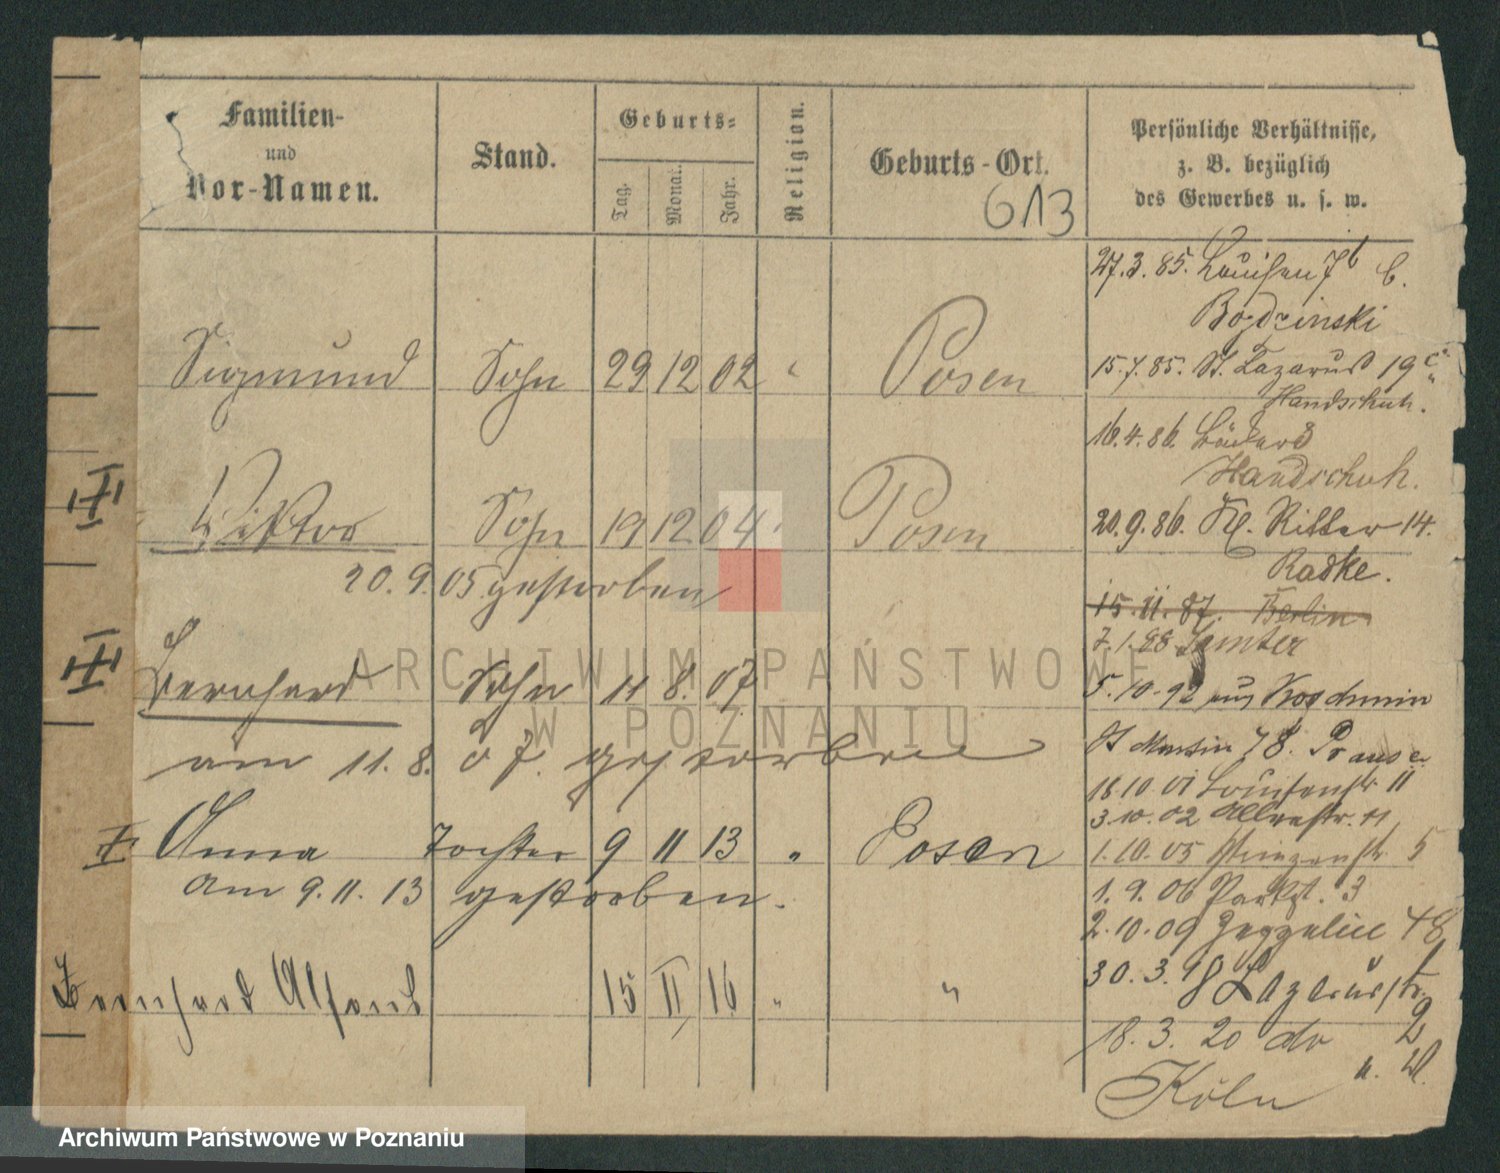 Familien-
und
Vor-Namen.
Stand.
Geburts-
Tag.
Monat.
Jahr.
Religion.
Geburts-Ort.
613
Persönliche Verhältnisse,
z. B. bezüglich
des Gewerbes u. s. w.
27.3.85. Louisen 7b b.
Bogdzinski
Sigmund Sohn 29 12 02 Posen
15.7.85. St. Lazarus 19c
Handschuh.
16.4.86.
Handschuh.
Viktor Sohn 19 12 04 Posen
20.9.86. Kl. Ritter 14.
Radke.
20.9.05 gestorben
15.11.87. Berlin
7.1.88 Samter
Bernhard Sohn 11 8. 07
5.10.92 aus Koschmin
am 11.8.07. gestorben
St Martin 78. Prause
18.10.01 Louisenstr 11
3.10.02
Anna Tochter 9 11 13 " Posen
1.10.05 5
am 9.11.13 gestorben.
1.9.06 Parkst. 3
2.10.09 Zeppelin 48
Bernhard Alfons 15 II 16 " "
30.3.18 Lazarusstr. 2
18.3.20 do
Köln
ARCHIWUM PAŃSTWOWE
W POZNANIU
Archiwum Państwowe w Poznaniu